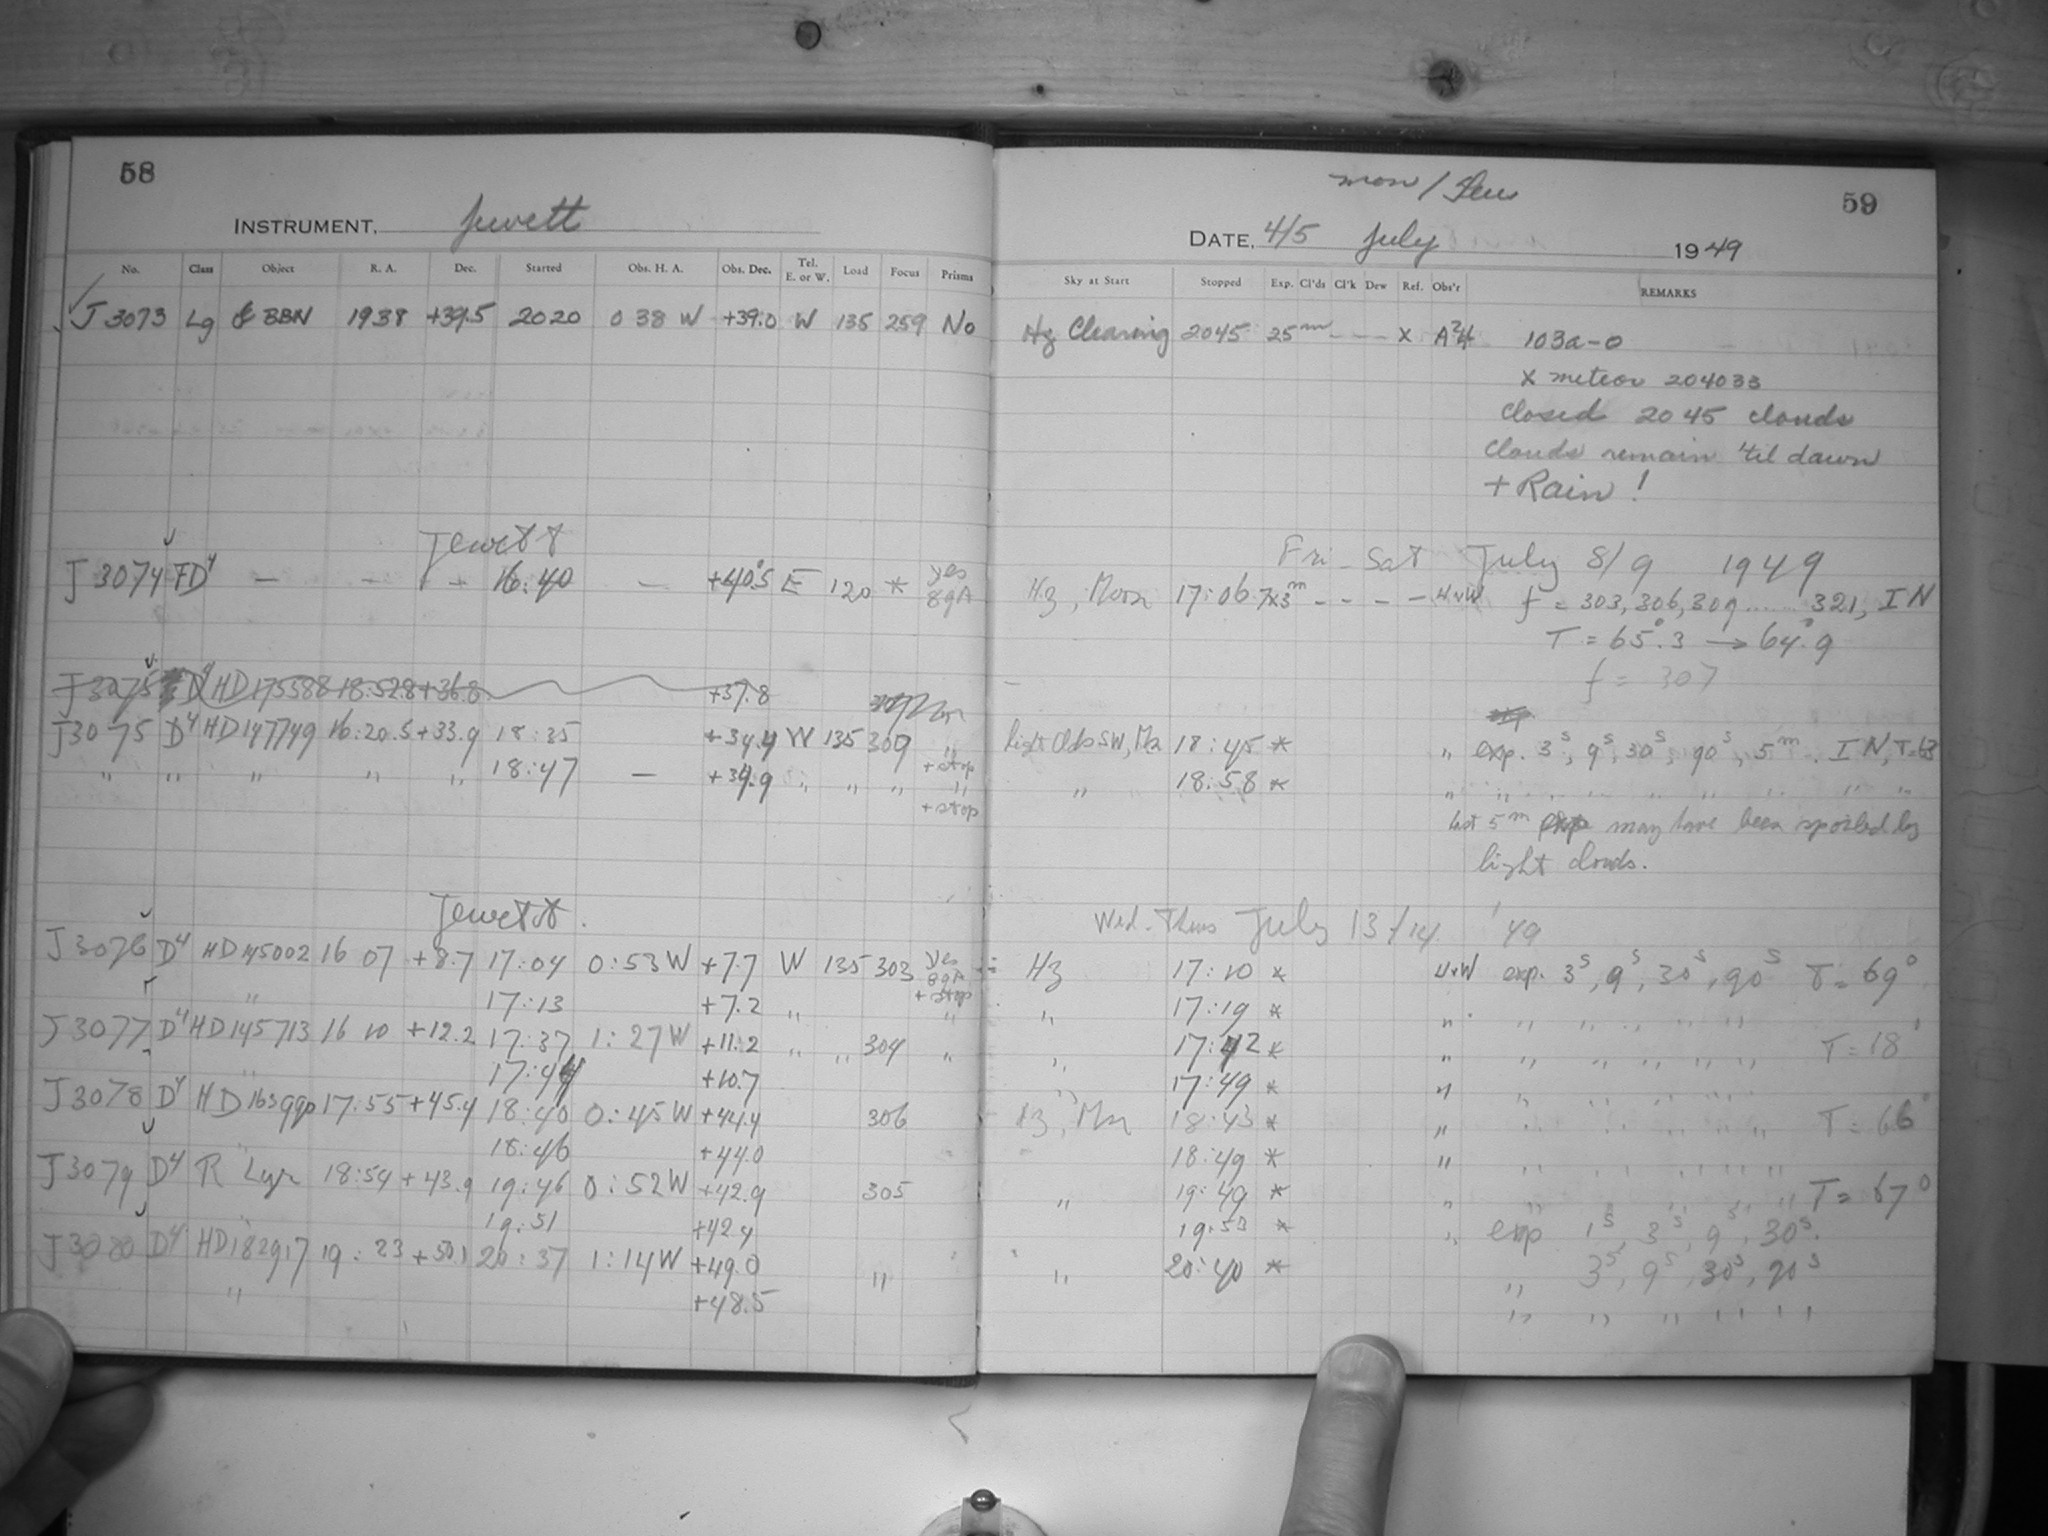 58
INSTRUMENT, Jewett
No. Class Object R. A. Dec. Started Obs. H. A. Obs. Dec. Tel. E. or W. Load Focus Prisms
J 3073 Lg BBN 1938 +39.5 2020 0 38 W +39.0 W 135 259 No
Jewett
J 3074 FD4 — — — 16:40 — +40.5 E 120 * yes 8gA
J 3075 D4 HD 175588 18:52.8 +36.8 +37.8
J3075 D4 HD147749 16:20.5 +33.9 18:35 +34.4 W 135 309 " + stop
" " " " " 18:47 — +34.9 " " " " + stop
Jewett.
J3076 D4 HD 145002 16 07 +8.7 17:04 0:53W +7.7 W 135 303 yes 8gA + stop
" 17:13 +7.2 " "
J3077 D4 HD145713 16 10 +12.2 17:37 1:27W +11.2 " " 304 "
" 17:44 +10.7
J3078 D4 HD 163990 17:55 +45.4 18:40 0:45W +44.4 306
18:46 +44.0
J3079 D4 R Lyr 18:54 +43.9 19:46 0:52W +42.9 305
19:51 +42.4
J3080 D4 HD182917 19:23 +50.1 20:37 1:14W +49.0 "
" +48.5
mon/Tues
59
DATE, 4/5 July 1949
Sky at Start Stopped Exp. Cl'ds Cl'k Dew Ref. Obs'r REMARKS
Hz Clearing 2045 25m - - - X 103a-0
X meteor 204033
Closed 2045 clouds
Clouds remain 'til dawn
+ Rain!
Fri - Sat July 8/9 1949
Hz, Moon 17:06 7x3m - - - - H+W f = 303, 306, 309 ...... 321, IN
T = 65°.3 → 64°.9
f = 307
light Clds SW, Mn 18:45 * " exp. 3s, 9s, 30s, 90s, 5m. IN, T=63
" 18:58 * " " " " " " " " "
last 5m may have been spoiled by
light clouds.
Wed. - Thurs July 13/14 '49
Hz 17:10 * H+W exp. 3s, 9s, 30s, 90s T = 69°
" 17:19 * " " " " " "
" 17:42 * " " " " " " T = 18
17:49 * " " " " " "
Hz, Mn 18:43 * " " " " " " T = 66°
18:49 * " " " " " "
" 19:49 * " " " " " " T = 67°
19:53 * " exp 1s, 3s, 9s, 30s.
" 20:40 * " 3s, 9s, 30s, 90s
" " " " " "